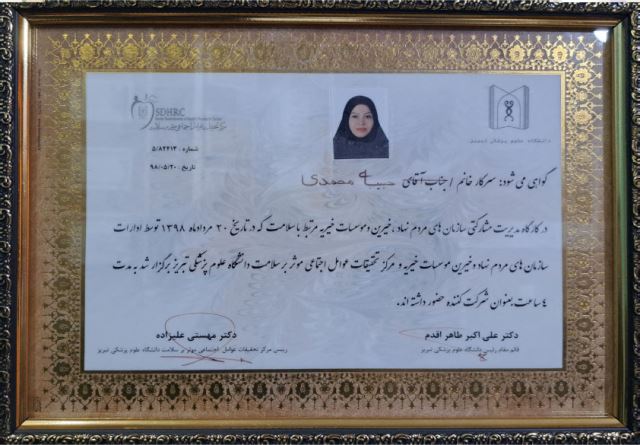 SDHRC
دانشگاه علوم پزشکی تبریز
شماره : ۵/۸۲۴۱۳
تاریخ : ۹۸/۰۵/۲۰
گواهی می شود: سرکار خانم / جناب آقای حبیبه محمدی
در کارگاه مدیریت مشارکتی سازمان های مردم نهاد، خیرین و موسسات خیریه مرتبط با سلامت که در تاریخ ۲۰ مردادماه ۱۳۹۸ توسط ادارات
سازمان های مردم نهاد و خیرین موسسات خیریه و مرکز تحقیقات عوامل اجتماعی موثر بر سلامت دانشگاه علوم پزشکی تبریز برگزار شد به مدت
٤ ساعت بعنوان شرکت کننده حضور داشته اند.
دکتر علی اکبر طاهر اقدم
قائم مقام رئیس دانشگاه علوم پزشکی تبریز
دکتر مهستی علیزاده
رییس مرکز تحقیقات عوامل اجتماعی موثر بر سلامت دانشگاه علوم پزشکی تبریز